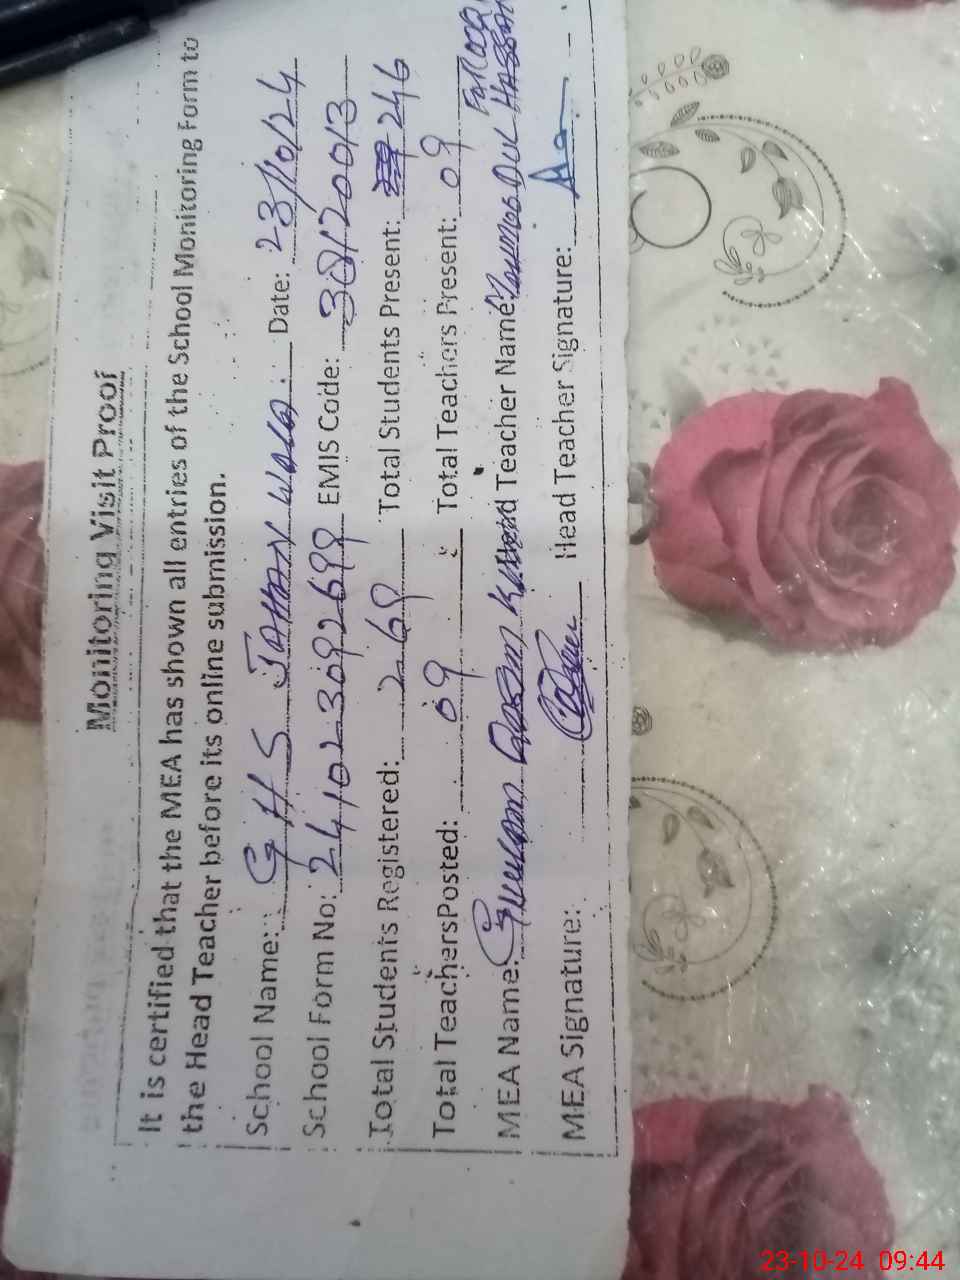 Monitoring Visit Proof
It is certified that the MEA has shown all entries of the School Monitoring Form to
the Head Teacher before its online submission.
School Name: G H S JAHAN WALA. Date: 23/10/24
School Form No: 241023092699 EMIS Code:
Total Students Registered: 269 Total Students Present: 246
Total TeachersPosted: 09 Total Teachers Present: 09
MEA Name: Head Teacher Name: UL HASSAN Farooqi
MEA Signature: Head Teacher Signature:
23-10-24 09:44